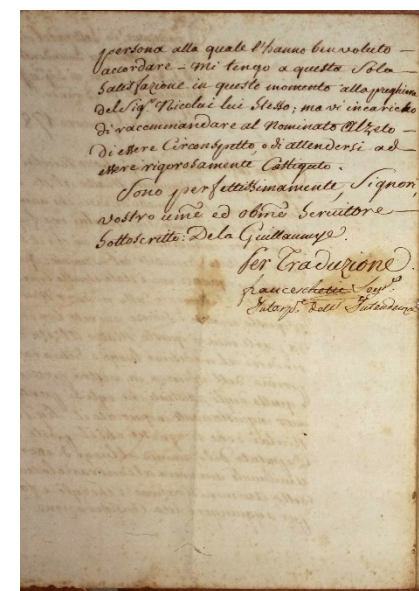 persona alla quale l'hanno ben voluto —
accordare – Mi tengo a questa Sola
Satisfazione in questo momento alla preghiera
del Sigr. Nicolai lui Stesso; ma vi incaricho
di raccommandare al Nominato Alzeto
di essere Circonspetto, o di attendersi ad —
essere rigorosamente Castigato.
Sono perfettissimamente, Signori,
vostro umē ed obmē Servitore —
Sottoscritto: De la Guillaumye.
Per Traduzione.
Franceschetti Segr.
Interp. dell' Intendenza